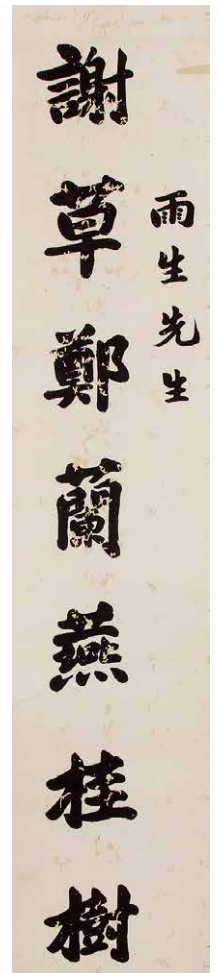 雨生先生
謝草鄭蘭燕桂樹